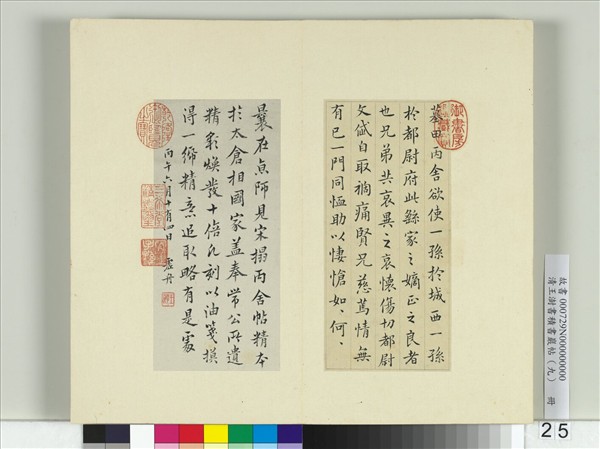 墓田丙舍欲使一孫於城西一孫
於都尉府此繇家之嫡正之良者
也兄弟共哀異之哀懷傷切都尉
文岱自取禍痛賢兄慈篤情無
有已一門同恤助以悽愴如何
曩在京師見宋搨丙舍帖精本
於太倉相國家蓋奉常公所遺
精彩煥發十倍凡刻以油箋摸
得一締精意追取略有是處
丙午六月十有四日 虛舟
御書房
故書 000729N000000000
清王澍書積書巖帖(九) 冊
25